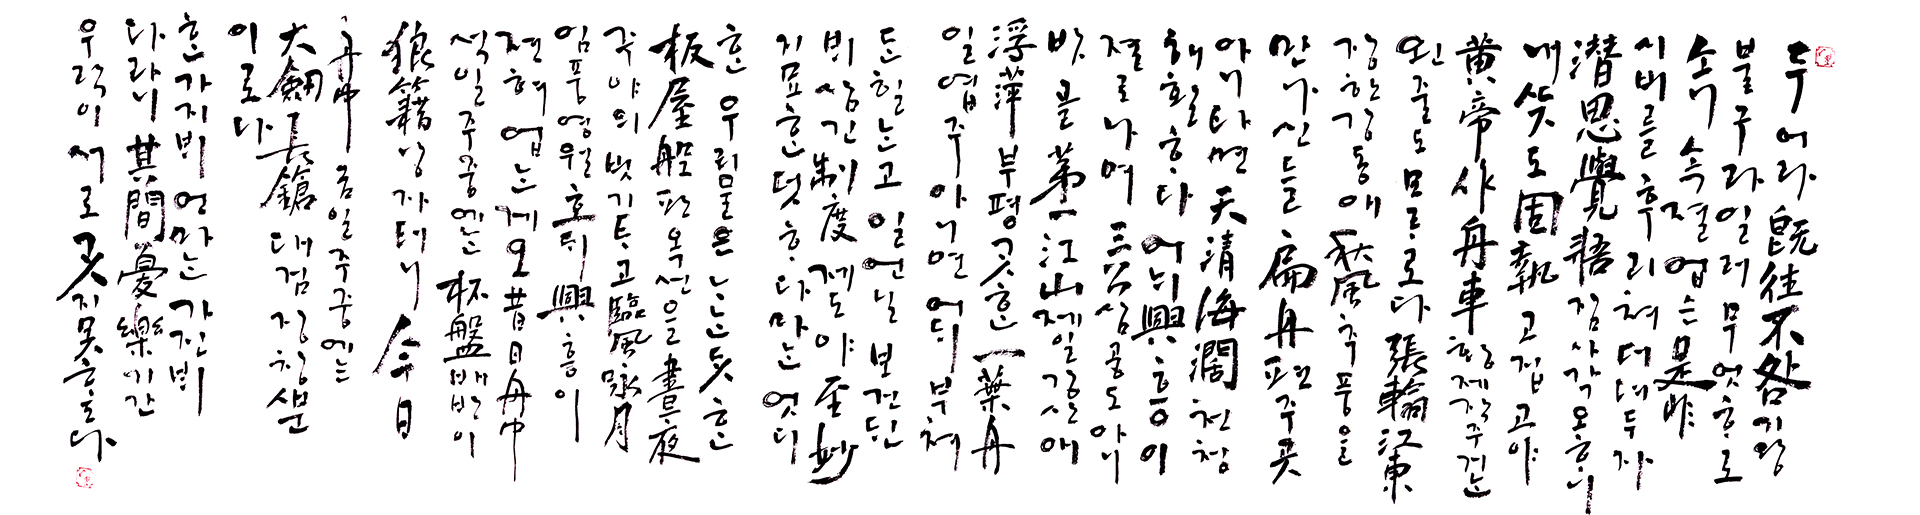 두어라 旣往不咎 기왕
불구라 일러 무엇ᄒᆞ로
소니 속졀업슨 是非
시비를 후리쳐 더뎌두쟈
潛思覺悟 잠사각오ᄒᆞ니
내 ᄯᅳᆺ도 固執 고집고야
黃帝作舟車 황제작주거ᄂᆞᆫ
왼 줄도 모ᄅᆞ로다 張翰江東
장한강동애 秋風 추풍을
만나신들 扁舟 편주 곳
아니 타면 天淸海闊 천청
해활ᄒᆞ다 어ᄂᆡ 興 흥이
졀로 나며 三公 삼공도 아니
밧골 第一江山 제일강산애
浮萍 부평ᄀᆞᆺᄒᆞᆫ 一葉舟
일엽주 아니면 어ᄃᆡ 부쳐
ᄃᆞᆫ힐ᄂᆞᆫ고 일언 닐 보건ᄃᆡᆫ
ᄇᆡ 삼긴 制度 제도야 至妙
지묘ᄒᆞᆫ 덧ᄒᆞ다마ᄂᆞᆫ 엇디
ᄒᆞᆫ 우리 물은 ᄂᆞᄂᆞᆫ ᄃᆞᆺᄒᆞᆫ
板屋船 판옥선을 晝夜
주야의 빗기 ᄐᆞ고 臨風咏月
임풍영월호ᄃᆡ 興 흥이
젼혀 업ᄂᆞᆫ게오 昔日舟中
석일주중에ᄂᆞᆫ 杯盤 배반이
狼籍 낭자터니 今日
舟中 금일주중에ᄂᆞᆫ
大劒長鎗 대검장창ᄲᅮᆫ
이로다
ᄒᆞᆫ 가지 ᄇᆡ언마ᄂᆞᆫ 가진 ᄇᆡ
다라니 其間憂樂 기간
우락이 서로 ᄀᆞᆺ지 못ᄒᆞ도다